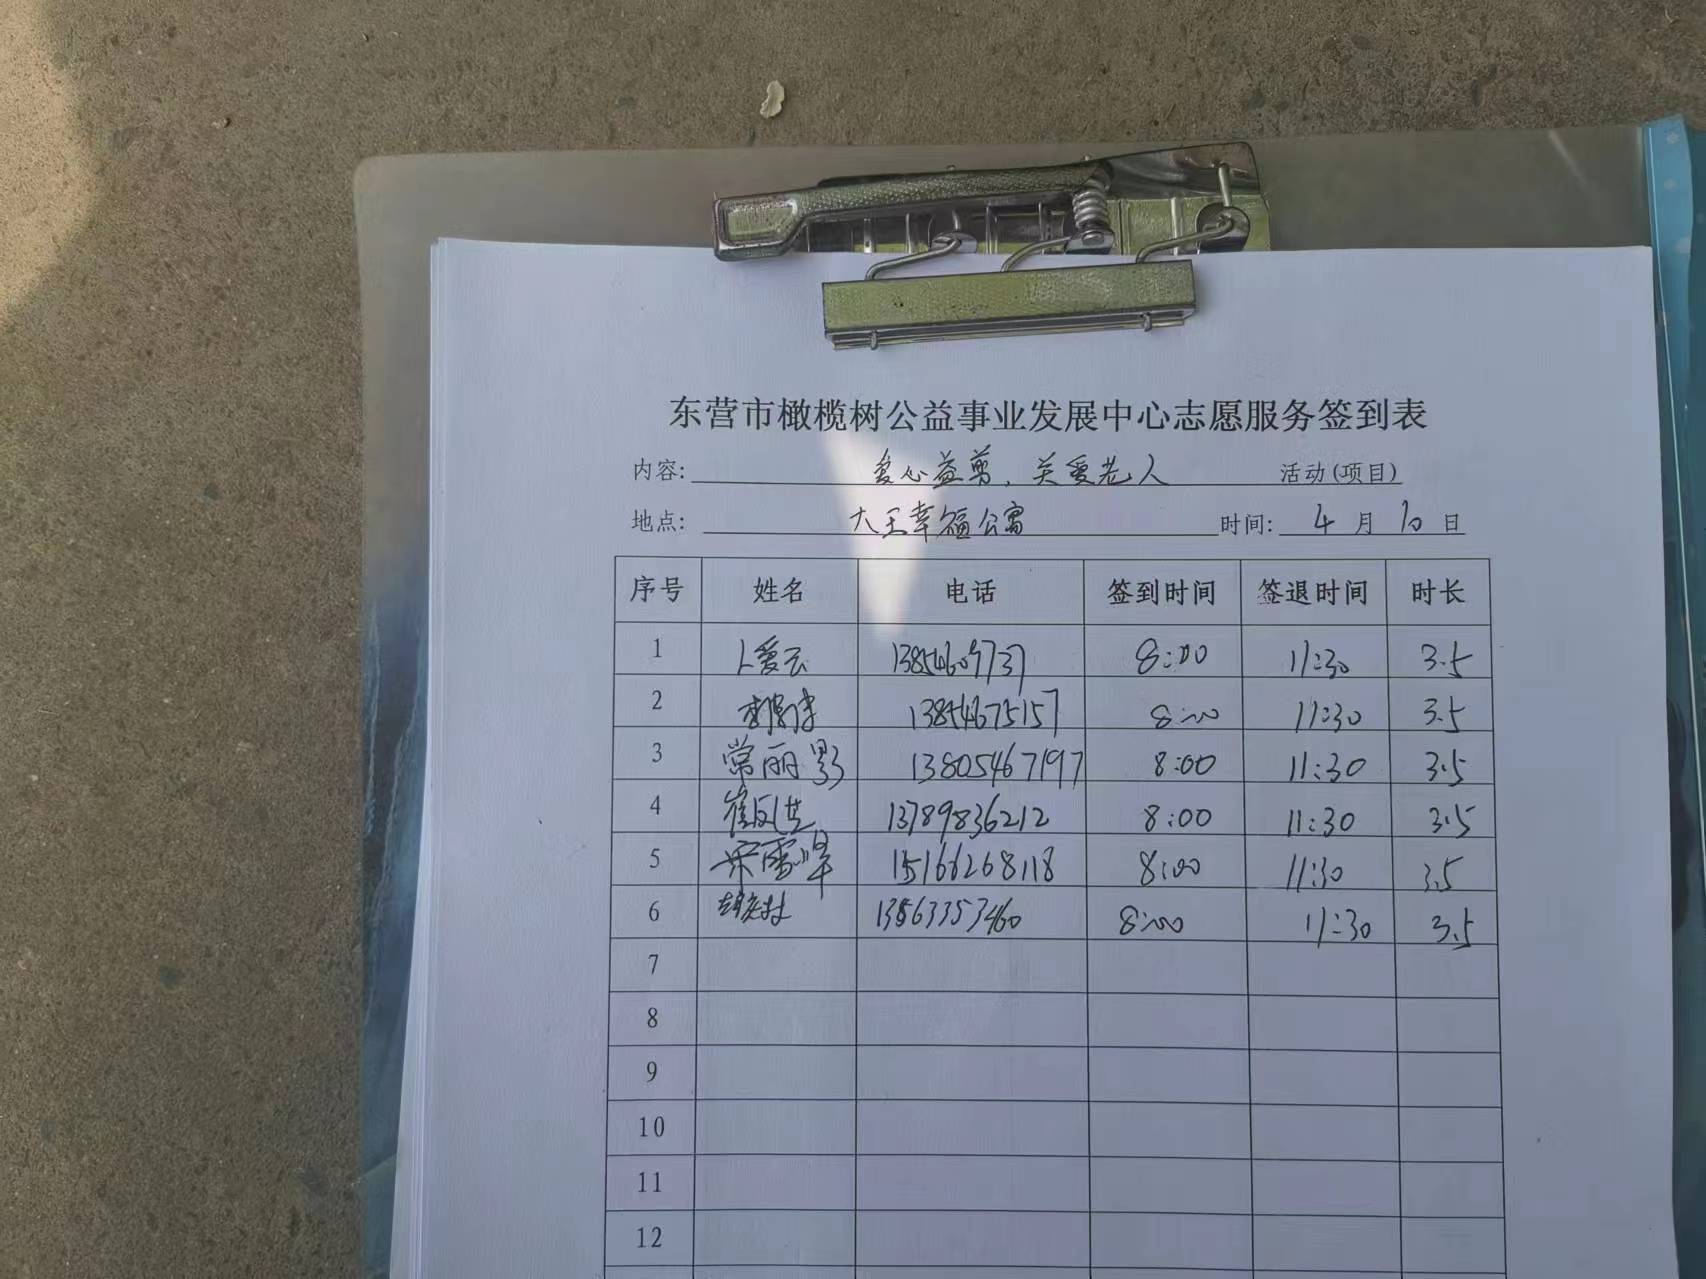 东营市橄榄树公益事业发展中心志愿服务签到表
内容: 爱心益剪，关爱老人 活动(项目)
地点: 大王幸福公寓 时间: 4 月 10 日
序号 姓名 电话 签到时间 签退时间 时长
1 卜爱云 13854609737 8:00 11:30 3.5
2 13854675157 8:00 11:30 3.5
3 常丽影 13805467197 8:00 11:30 3.5
4 崔 13789836212 8:00 11:30 3.5
5 宋雪 15166268118 8:00 11:30 3.5
6 13563353460 8:00 11:30 3.5
7
8
9
10
11
12